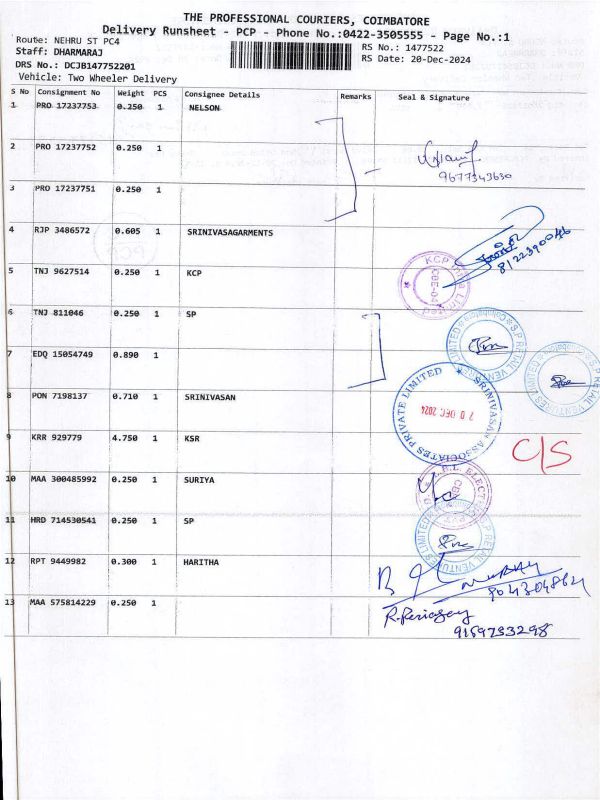 THE PROFESSIONAL COURIERS, COIMBATORE
Delivery Runsheet - PCP - Phone No.:0422-3505555 - Page No.:1
Route: NEHRU ST PC4
Staff: DHARMARAJ
DRS No.: DCJB147752201
Vehicle: Two Wheeler Delivery
RS No.: 1477522
RS Date: 20-Dec-2024
S No Consignment No Weight PCS Consignee Details Remarks Seal & Signature
1 PRO 17237753 0.250 1 NELSON
2 PRO 17237752 0.250 1
9677343630
3 PRO 17237751 0.250 1
4 RJP 3486572 0.605 1 SRINIVASAGARMENTS
8122390046
5 TNJ 9627514 0.250 1 KCP
KCP Infra Limited
CBE-04
6 TNJ 811046 0.250 1 SP
S.P. RETAIL VENTURES LIMITED Coimbatore
7 EDQ 15054749 0.890 1
S.P. RETAIL VENTURES LIMITED Coimbatore
8 PON 7198137 0.710 1 SRINIVASAN
SRINIVASAN ASSOCIATES PRIVATE LIMITED
20 DEC 2024
9 KRR 929779 4.750 1 KSR
C/S
10 MAA 300485992 0.250 1 SURIYA
11 HRD 714530541 0.250 1 SP
S.P. RETAIL VENTURES LIMITED
12 RPT 9449982 0.300 1 HARITHA
13 MAA 575814229 0.250 1
R. Periasay
9159733298